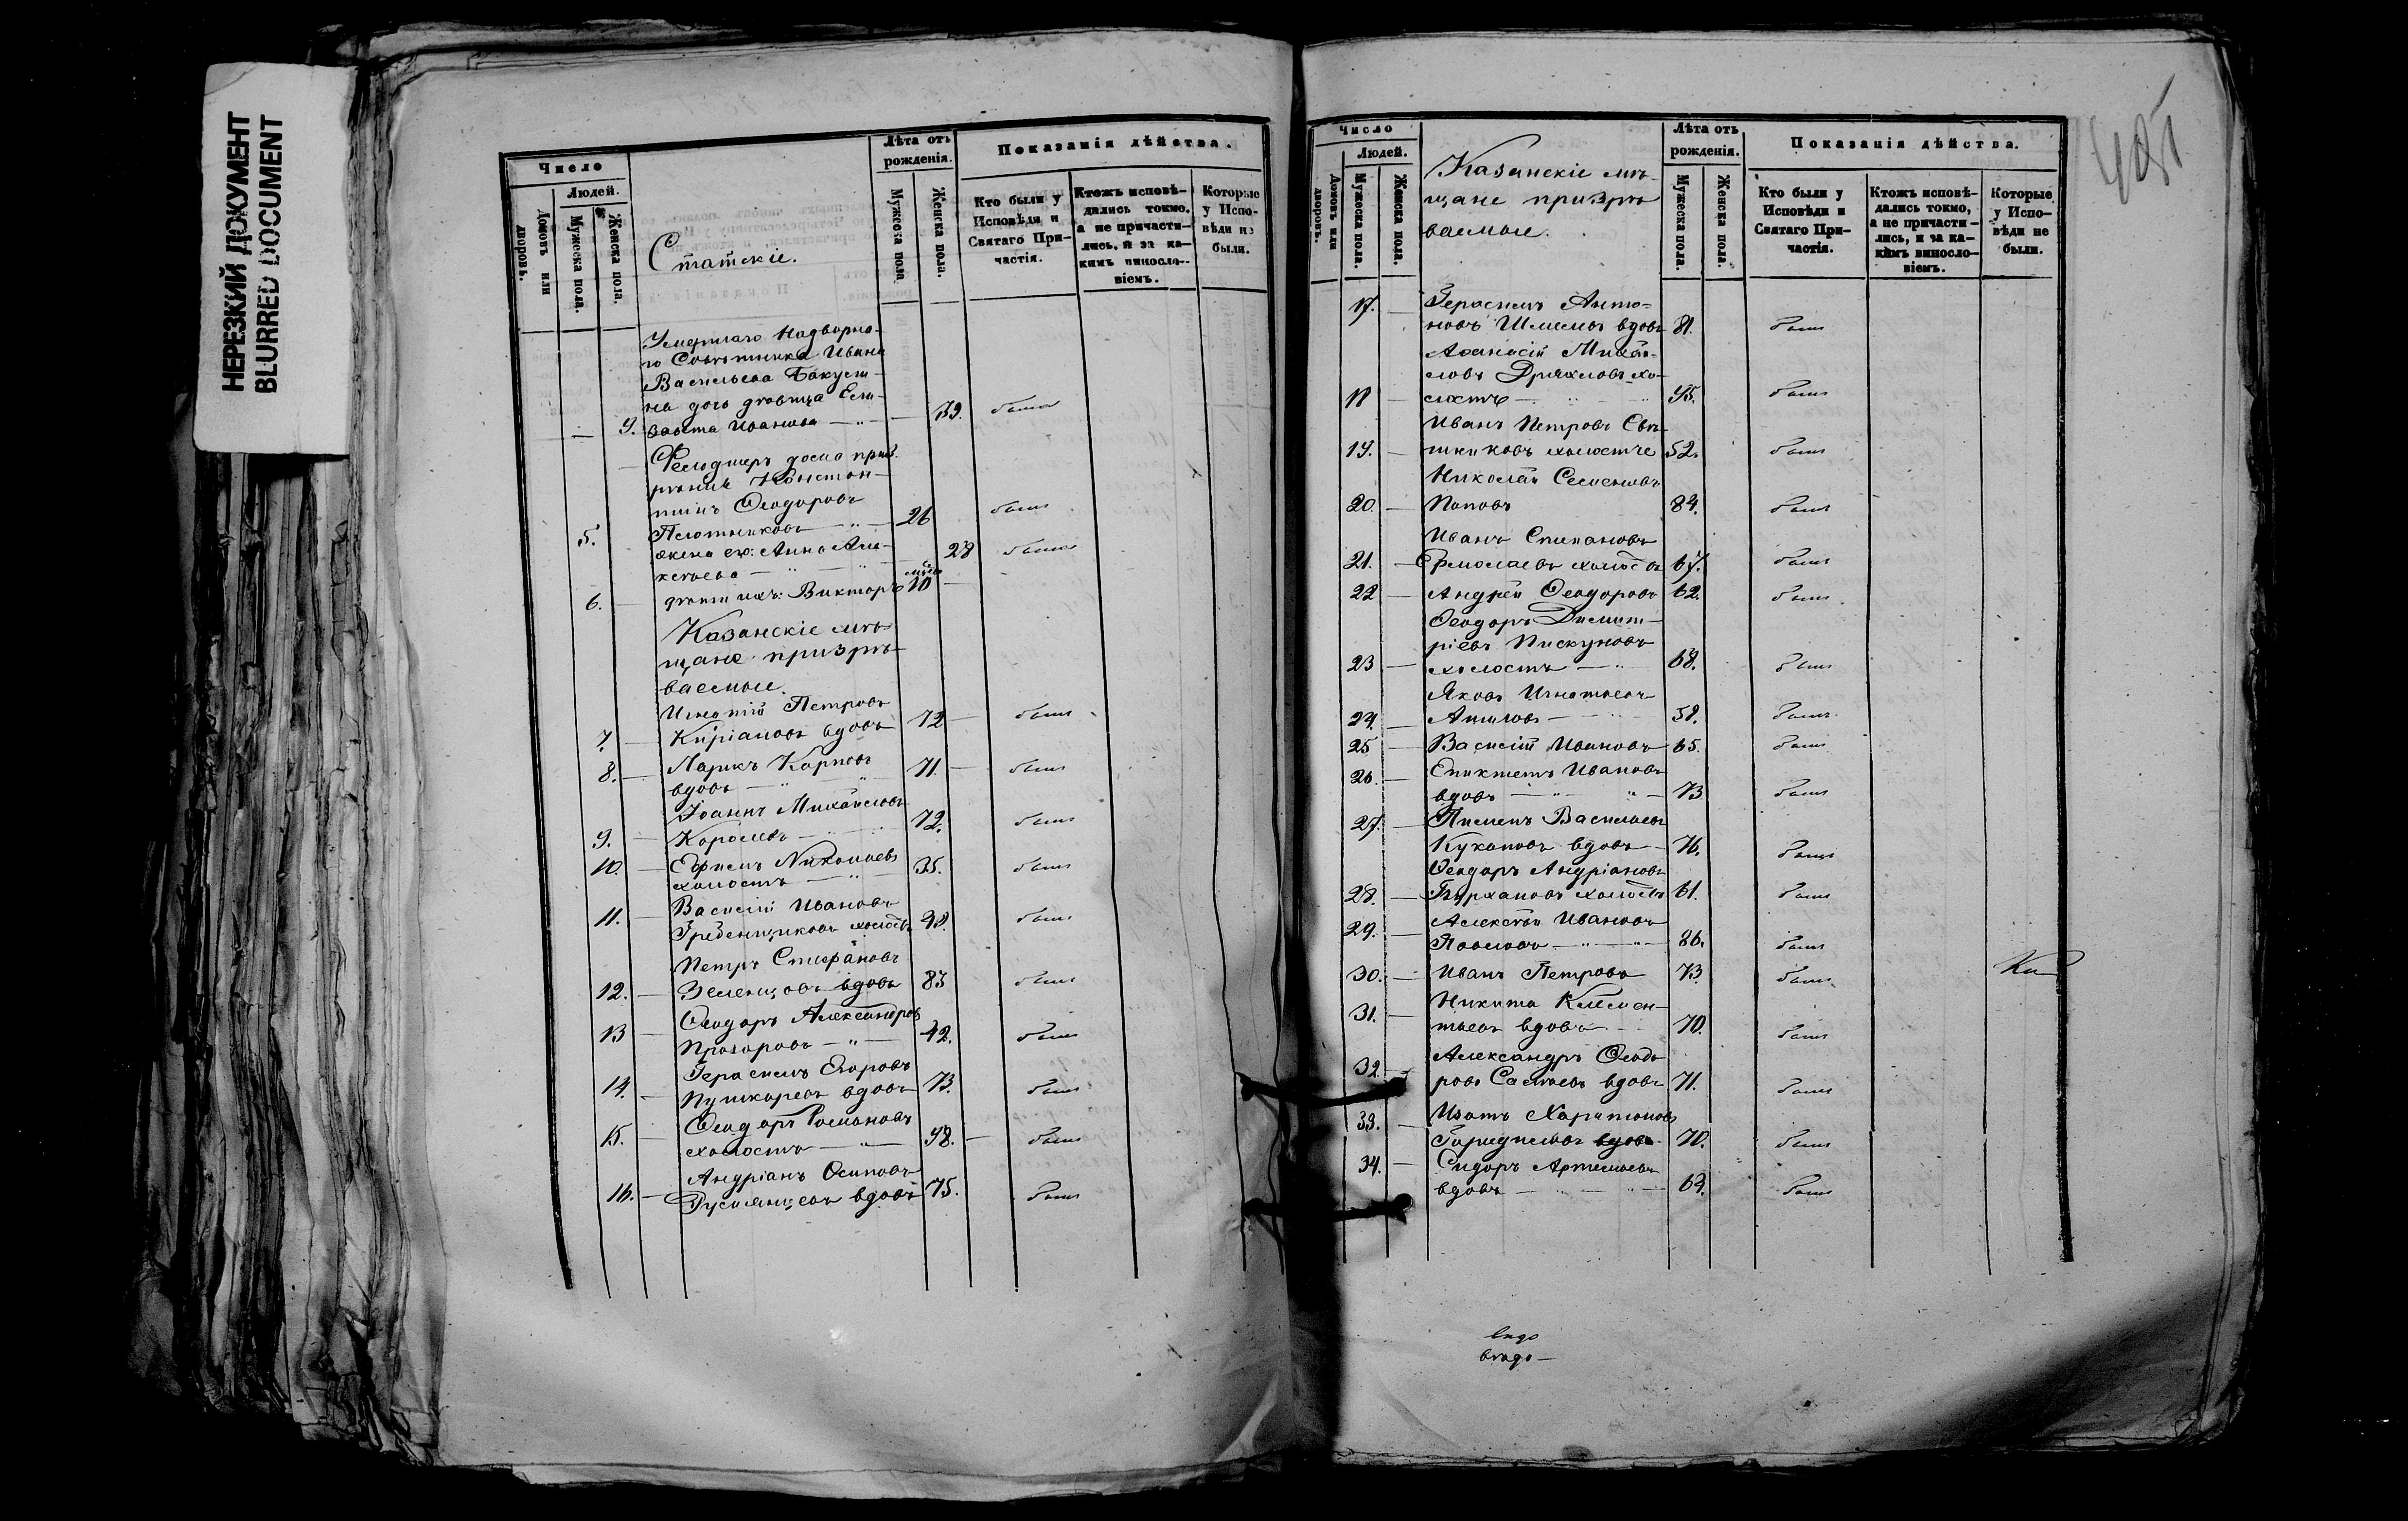 НЕРЕЗКИЙ ДОКУМЕНТ
BLURRED DOCUMENT
Число
Людей.
Домовъ или дворовъ.
Мужеска пола.
Женска пола.
Статскіе.
Лѣта отъ рожденія.
Мужеска пола
Женска пола.
Показанія дѣйства.
Кто были у Исповѣди и Святаго При-
частія.
Ктожъ исповѣ-
дались токмо,
а не причасти-
лись, и за ка-
кимъ винослo-
віемъ.
Которые
у Испо-
вѣди не
были.
Умершаго Надворна-
го Совѣтника Ивана
Васильева
на дочь дѣвица Ели-
9. завета Иванова — 39. была
Фельдшеръ дома приз-
рѣнія Констан-
тинъ Ѳеодоровъ
5. Плотниковъ — 26 былъ
жена его: Анна Але-
ксѣева — 28 была
6. — дѣти ихъ: Викторъ 10
Казанскіе мѣ-
щане призрѣ-
ваемые.
Игнатій Петровъ
7. — Киріановъ вдовъ 72 — былъ
8. — Ларіонъ Карповъ
вдовъ — 71. — былъ
Іоаннъ Михайловъ
9. — Королевъ — 72. былъ
10. — Ефимъ Николаевъ
холостъ — 35. былъ
11. — Василій Ивановъ
Гребенщиковъ холостъ 48. былъ
Петръ Епифановъ
12. — Зеленцовъ вдовъ 83 былъ
13 — Ѳеодоръ Александровъ
Прозоровъ — 42. былъ
14. — Герасимъ Егоровъ
Пушкаревъ вдовъ 73. былъ
15. — Ѳеодоръ Романовъ
холостъ — 98. — былъ
Андріанъ Осиповъ
16. — Румянцевъ вдовъ 75. былъ
Число
Людей.
Домовъ или дворовъ.
Мужеска пола.
Женска пола.
Казанскіе мѣ-
щане призрѣ-
ваемые.
Лѣта отъ рожденія.
Мужеска пола.
Женска пола.
Показанія дѣйства.
Кто были у
Исповѣди и
Святаго При-
частія.
Ктожъ исповѣ-
дались токмо,
а не причасти-
лись, и за ка-
кимъ винослo-
віемъ.
Которые
у Испо-
вѣди не
были.
17. — Герасимъ Анто-
новъ вдовъ 81. былъ
Аѳанасій Михай-
ловъ Дряхловъ хо-
18 — лостъ — былъ
Иванъ Петровъ
19. — холостъ 52. былъ
Николай Семеновъ
20. — Поповъ 84. былъ
Иванъ Степановъ
21. — Ермолаевъ холостъ 67. былъ
22 — Андрей Ѳеодоровъ 62. былъ
Ѳеодоръ Димит-
ріевъ Пискуновъ
23 — холостъ — 68. былъ
Яковъ Игнатьевъ
24. — 58. былъ
25 — Василій Ивановъ 65. былъ
26. — Епиктетъ Ивановъ
вдовъ — 73 былъ
27. — Пименъ Васильевъ
вдовъ — 76. былъ
Ѳеодоръ Андріановъ
28. — холостъ 61. былъ
29. — Алексѣй Ивановъ
Павловъ — 86. былъ
30. — Иванъ Петровъ 73. былъ
31. — Никита Клемен-
тьевъ вдовъ 70. былъ
32. — Александръ Ѳеодо-
ровъ вдовъ 71. былъ
33. — Ипатъ Харитоновъ
вдовъ 70. былъ
34. — Сидоръ Артемьевъ
вдовъ — 62. былъ